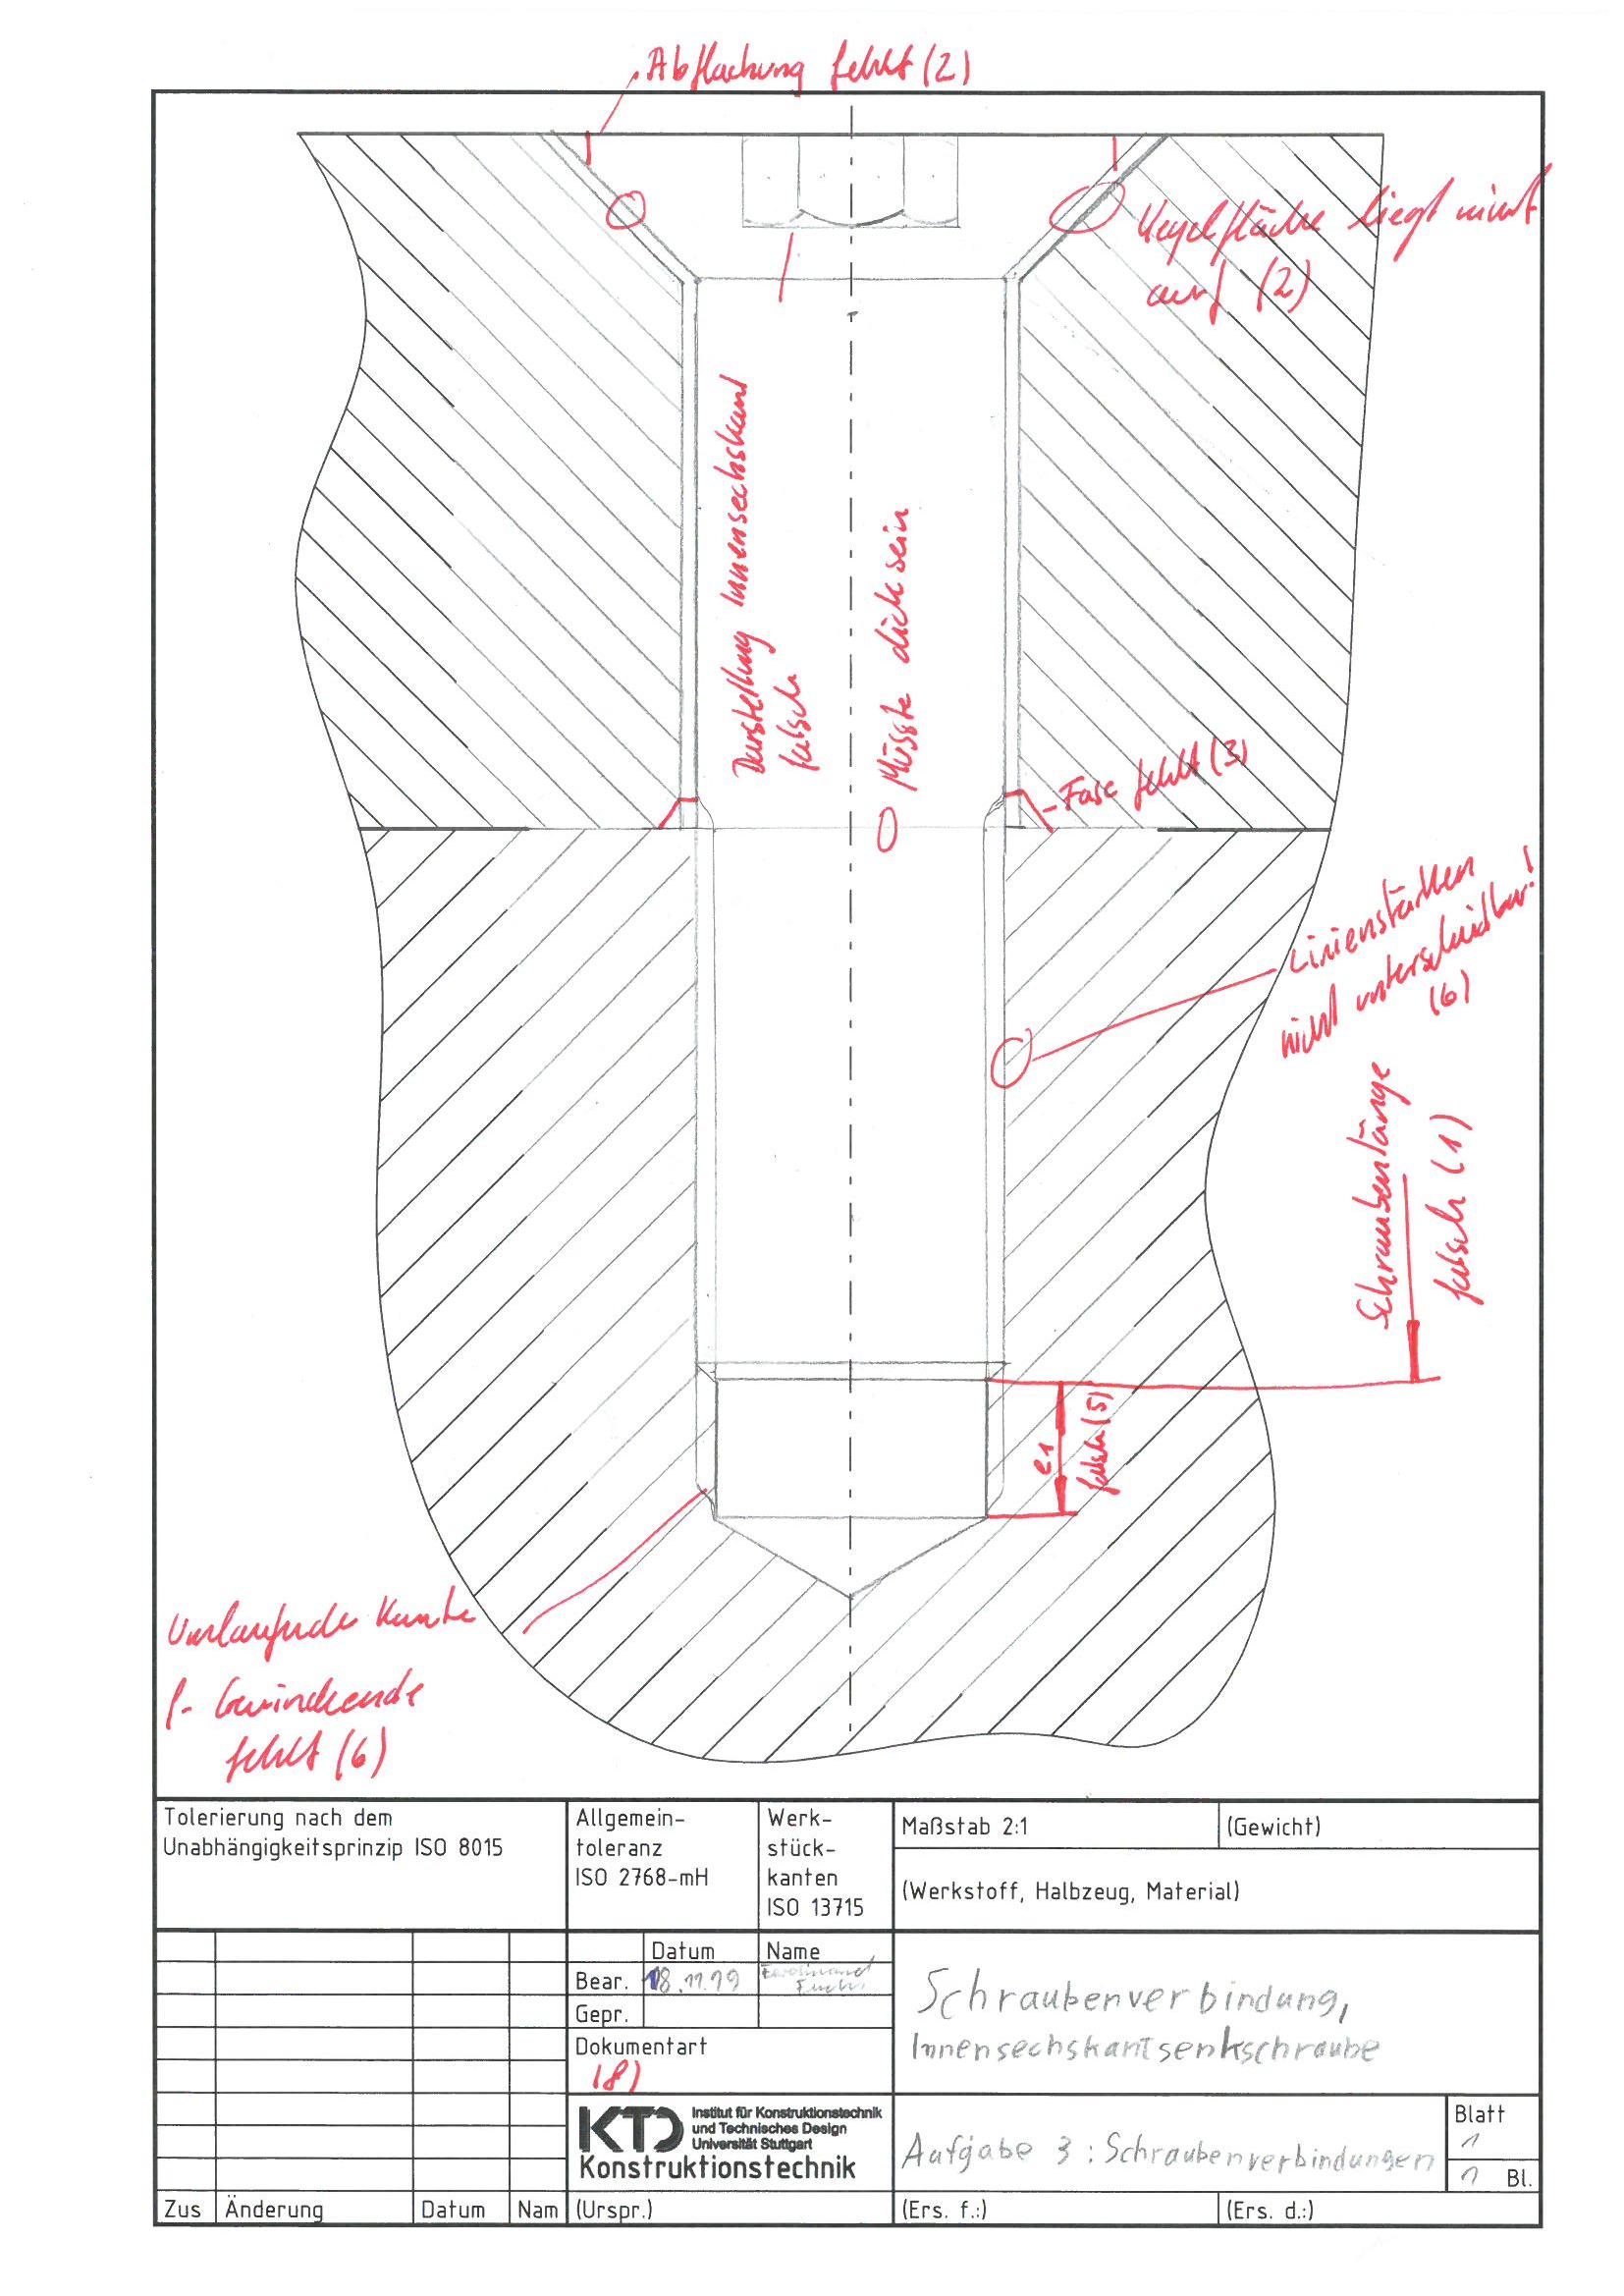 Abflachung fehlt (2)
Kegelfläche liegt nicht
auf (2)
Darstellung Innensechskant
falsch
Müsste dick sein
Fase fehlt (3)
Linienstärken
nicht unterscheidbar!
(6)
Schraubenlänge
falsch (1)
e1
falsch (5)
Umlaufende Kante
f. Gewindeende
fehlt (6)
Tolerierung nach dem
Unabhängigkeitsprinzip ISO 8015
Allgemein-
toleranz
ISO 2768-mH
Werk-
stück-
kanten
ISO 13715
Maßstab 2:1
(Gewicht)
(Werkstoff, Halbzeug, Material)
Datum
Name
Bear.
18.11.19
Ferdinand
Fuchs
Gepr.
Dokumentart
(8)
Schraubenverbindung,
Innensechskantsenkschraube
KTD
Institut für Konstruktionstechnik
und Technisches Design
Universität Stuttgart
Konstruktionstechnik
Aufgabe 3: Schraubenverbindungen
Blatt
1
1 Bl.
Zus
Änderung
Datum
Nam
(Urspr.)
(Ers. f.:)
(Ers. d.:)